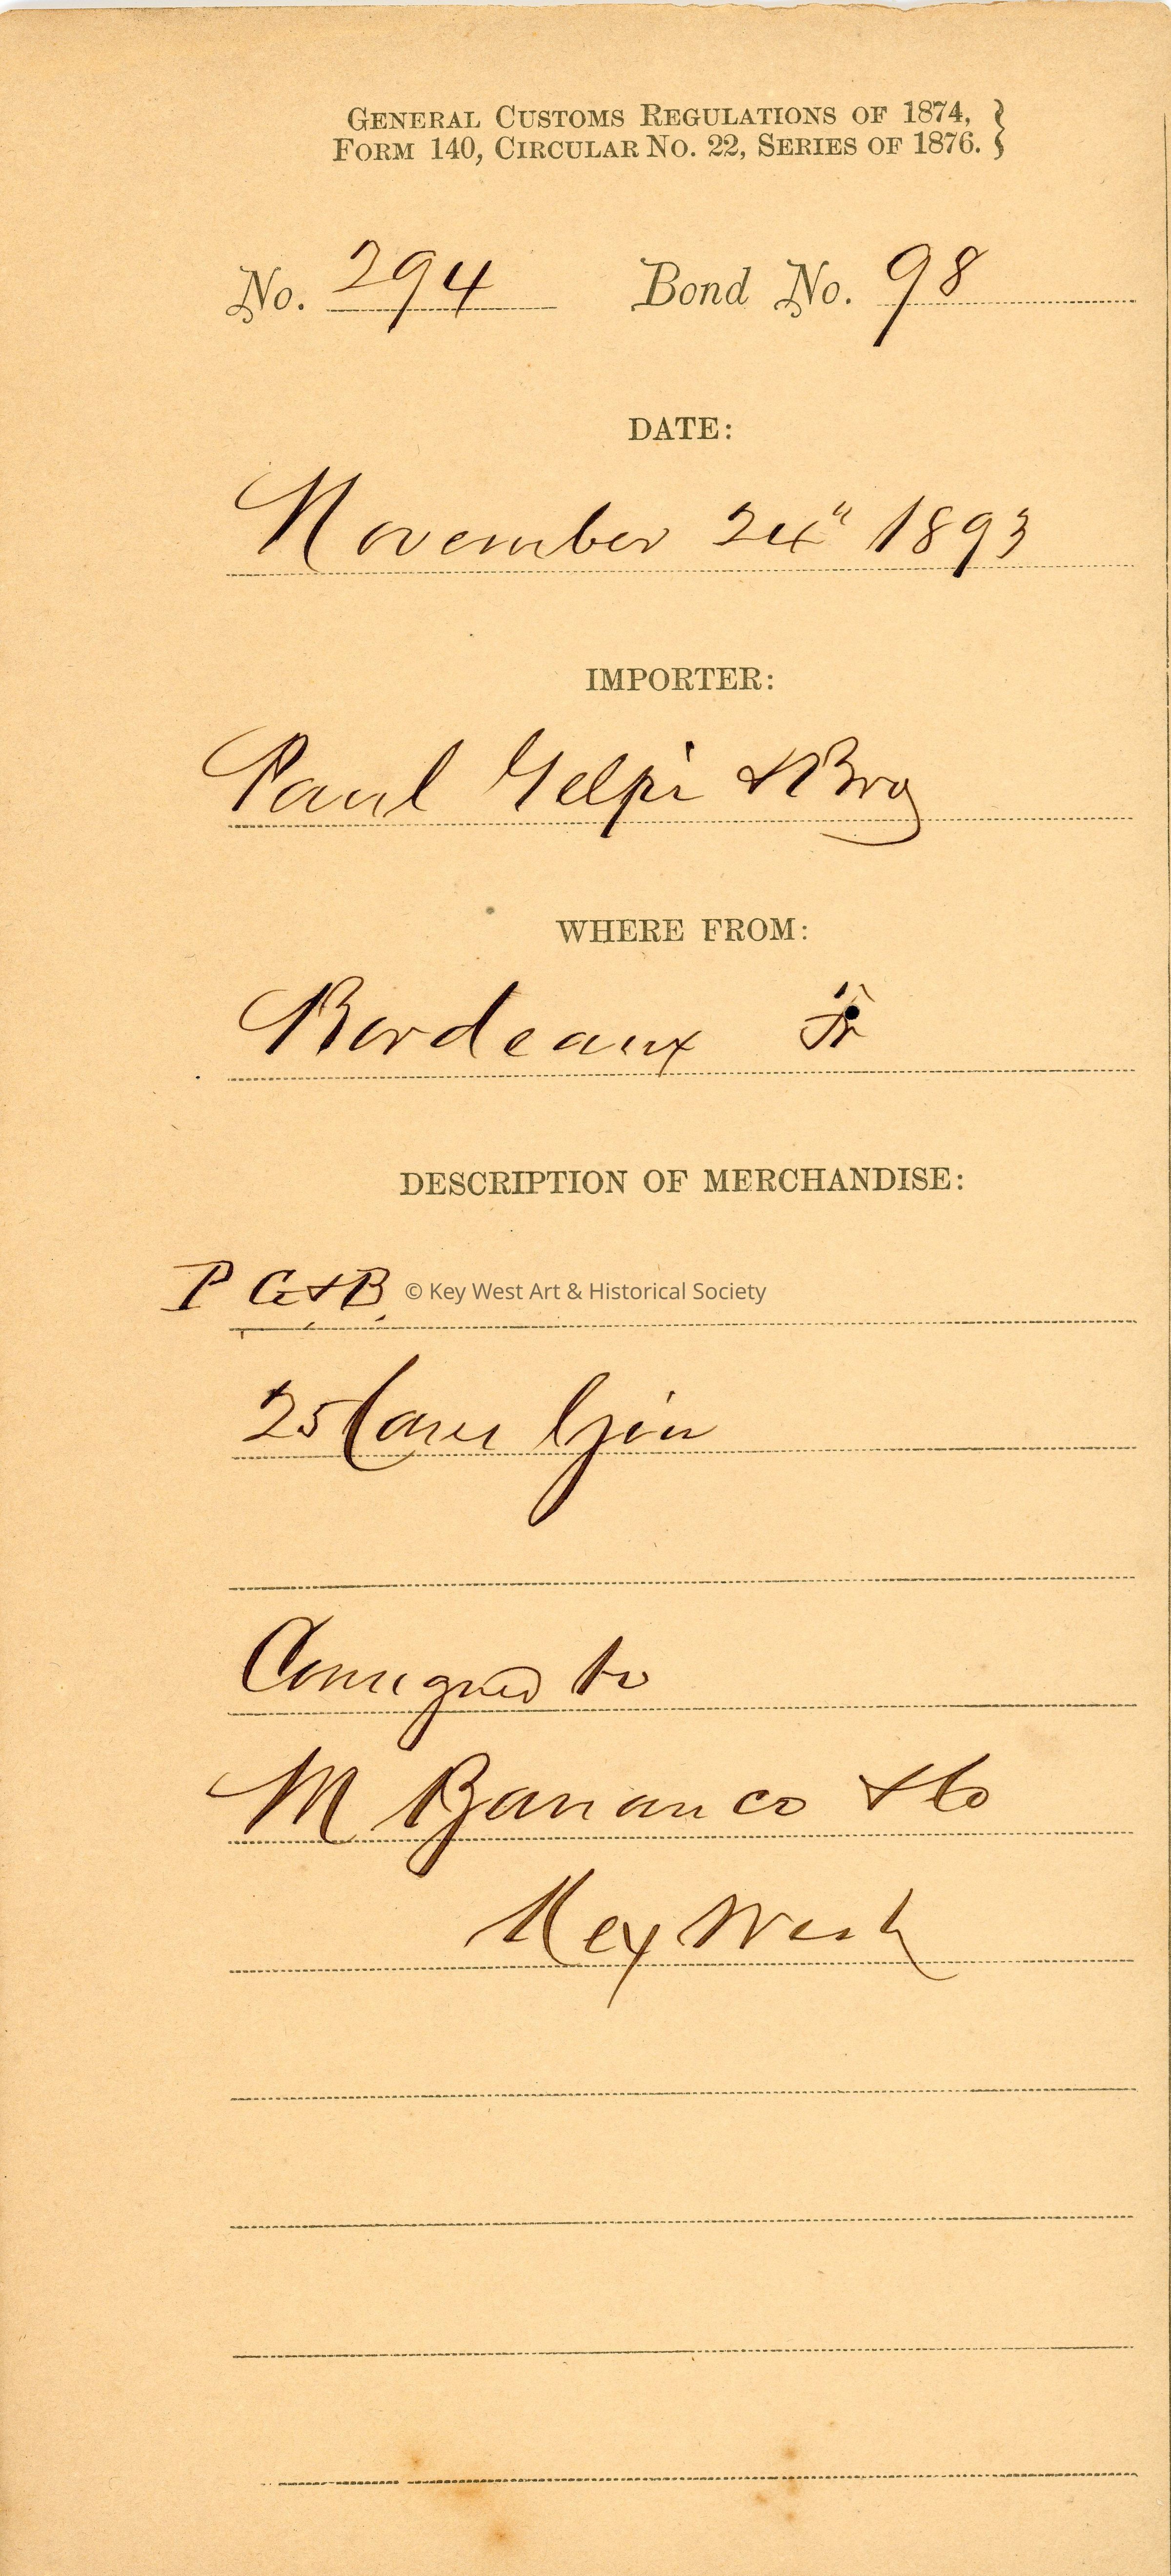 GENERAL CUSTOMS REGULATIONS OF 1874,
FORM 140, CIRCULAR NO. 22, SERIES OF 1876. }
No. 294 Bond No. 98
DATE:
November 24" 1893
IMPORTER:
Paul Gelpi & Bro
WHERE FROM:
Bordeaux Fr
DESCRIPTION OF MERCHANDISE:
P G & B © Key West Art & Historical Society
25 Cases Gin
Consigned to
M & Co
Key West